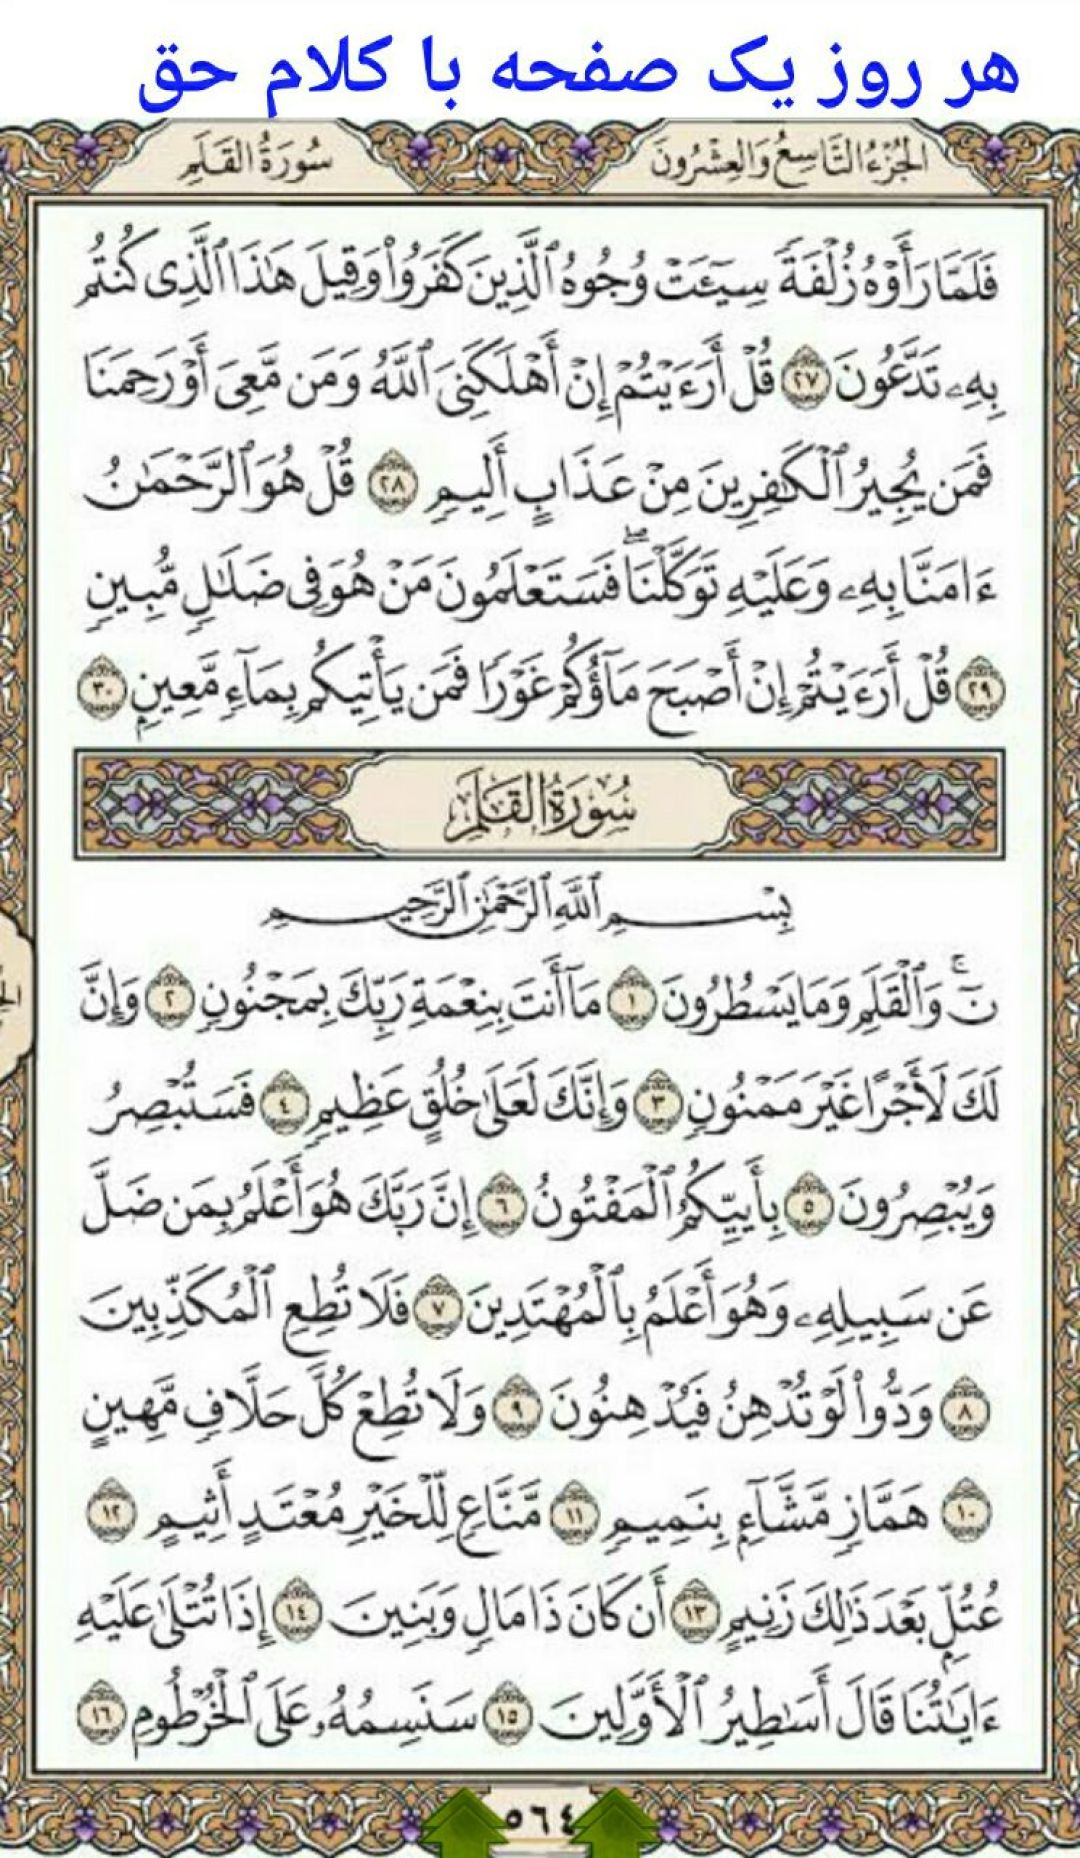 هر روز یک صفحه با کلام حق
الجُزْءُ التَّاسِعُ وَالعِشْرُونَ
سُورَةُ القَلَمِ
فَلَمَّا رَأَوْهُ زُلْفَةً سِيٓـَٔتْ وُجُوهُ ٱلَّذِينَ كَفَرُواْ وَقِيلَ هَٰذَا ٱلَّذِى كُنتُم
بِهِۦ تَدَّعُونَ ٢٧ قُلْ أَرَءَيْتُمْ إِنْ أَهْلَكَنِىَ ٱللَّهُ وَمَن مَّعِىَ أَوْ رَحِمَنَا
فَمَن يُجِيرُ ٱلْكَٰفِرِينَ مِنْ عَذَابٍ أَلِيمٍ ٢٨ قُلْ هُوَ ٱلرَّحْمَٰنُ
ءَامَنَّا بِهِۦ وَعَلَيْهِ تَوَكَّلْنَاۖ فَسَتَعْلَمُونَ مَنْ هُوَ فِى ضَلَٰلٍ مُّبِينٍ
٢٩ قُلْ أَرَءَيْتُمْ إِنْ أَصْبَحَ مَآؤُكُمْ غَوْرًا فَمَن يَأْتِيكُم بِمَآءٍ مَّعِينٍ ٣٠
سُورَةُ القَلَمِ
بِسْمِ ٱللَّهِ ٱلرَّحْمَٰنِ ٱلرَّحِيمِ
نٓۚ وَٱلْقَلَمِ وَمَا يَسْطُرُونَ ١ مَآ أَنتَ بِنِعْمَةِ رَبِّكَ بِمَجْنُونٍ ٢ وَإِنَّ
لَكَ لَأَجْرًا غَيْرَ مَمْنُونٍ ٣ وَإِنَّكَ لَعَلَىٰ خُلُقٍ عَظِيمٍ ٤ فَسَتُبْصِرُ
وَيُبْصِرُونَ ٥ بِأَييِّكُمُ ٱلْمَفْتُونُ ٦ إِنَّ رَبَّكَ هُوَ أَعْلَمُ بِمَن ضَلَّ
عَن سَبِيلِهِۦ وَهُوَ أَعْلَمُ بِٱلْمُهْتَدِينَ ٧ فَلَا تُطِعِ ٱلْمُكَذِّبِينَ
٨ وَدُّواْ لَوْ تُدْهِنُ فَيُدْهِنُونَ ٩ وَلَا تُطِعْ كُلَّ حَلَّافٍ مَّهِينٍ
١٠ هَمَّازٍ مَّشَّآءٍۭ بِنَمِيمٍ ١١ مَّنَّاعٍ لِّلْخَيْرِ مُعْتَدٍ أَثِيمٍ ١٢
عُتُلٍّۭ بَعْدَ ذَٰلِكَ زَنِيمٍ ١٣ أَن كَانَ ذَا مَالٍ وَبَنِينَ ١٤ إِذَا تُتْلَىٰ عَلَيْهِ
ءَايَٰتُنَا قَالَ أَسَٰطِيرُ ٱلْأَوَّلِينَ ١٥ سَنَسِمُهُۥ عَلَى ٱلْخُرْطُومِ ١٦
٥٦٤